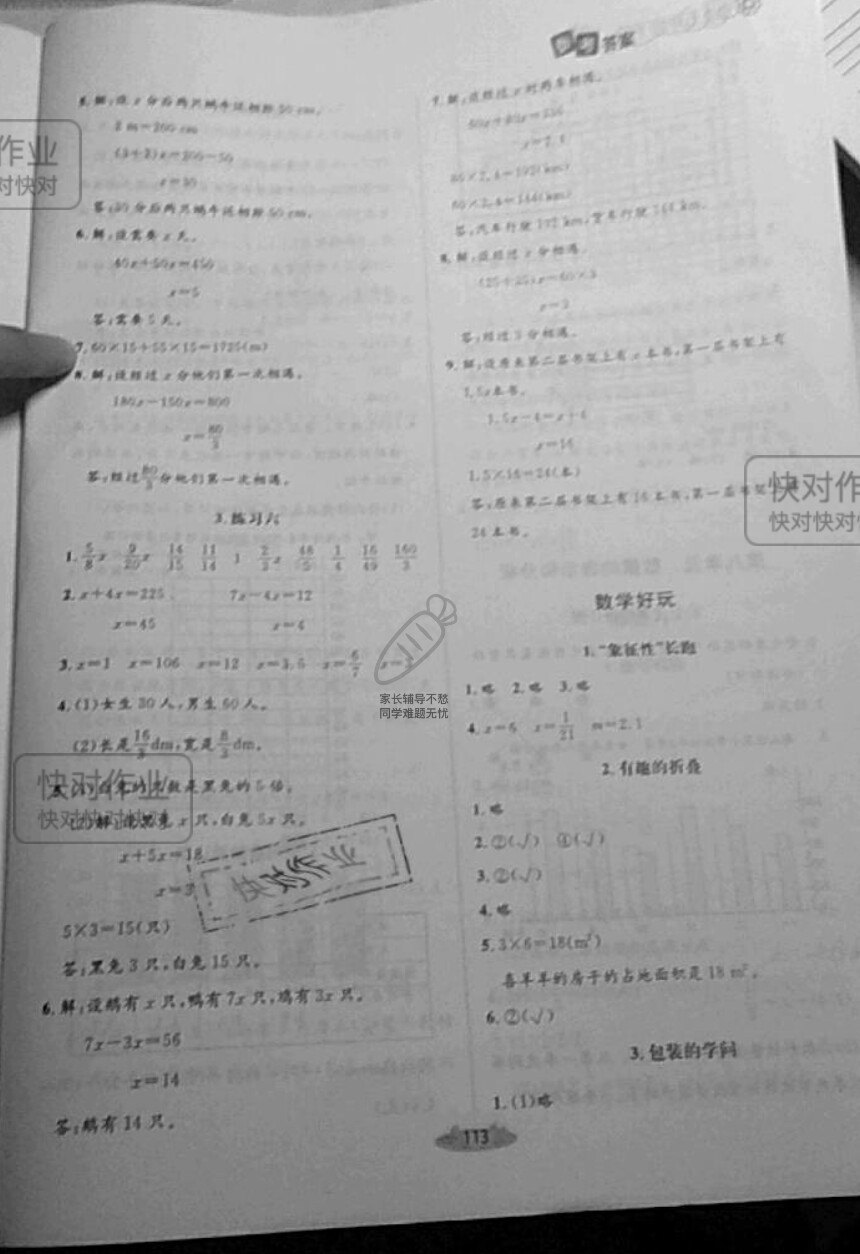 参考答案
5.解:设x分后两只蜗牛还相距50 cm。
2 m=200 cm
(3+2)x=200-50
x=30
答:30分后两只蜗牛还相距50 cm。
6.解:设需要x天。
40x+50x=450
x=5
答:需要5天。
7.60×15+55×15=1725(m)
8.解:设经过x分他们第一次相遇。
180x-150x=800
x=80/3
答:经过80/3分他们第一次相遇。
3.练习六
1. 5/8x 9/20x 14/15 11/14 1 2/3x 48/5 1/4 16/49 160/3
2.x+4x=225 7x-4x=12
x=45 x=4
3.x=1 x=106 x=12 x=3.5 x=6/7
4.(1)女生30人,男生60人。
(2)长是16/3dm,宽是8/3dm。
数是黑兔的5倍。
x只,白兔5x只。
x+5x=18
x=3
5×3=15(只)
答:黑兔3只,白兔15只。
6.解:设鹅有x只,鸭有7x只,鸡有3x只。
7x-3x=56
x=14
答:鹅有14只。
7.解:设经过x时两车相遇。
x=2.4
80×2.4=192(km)
60×2.4=144(km)
答:汽车行驶192 km,货车行驶144 km。
8.解:设经过x分相遇。
x=3
答:经过3分相遇。
9.解:设原来第二层书架上有x本书,第一层书架上有
1.5x本书。
1.5x-4=x+4
x=16
1.5×16=24(本)
答:原来第二层书架上有16本书,第一层书架
24本书。
数学好玩
1.“象征性”长跑
1.略 2.略 3.略
4.x=6 x=1/21 m=2.1
2.有趣的折叠
1.略
2.②(√) ④(√)
3.②(√)
4.略
5.3×6=18(m²)
喜羊羊的房子的占地面积是18 m²。
6.②(√)
3.包装的学问
1.(1)略
113
作业
对快对
快对作
快对快对
快对作业
快对快对快对
家长辅导不愁
同学难题无忧
快对作业